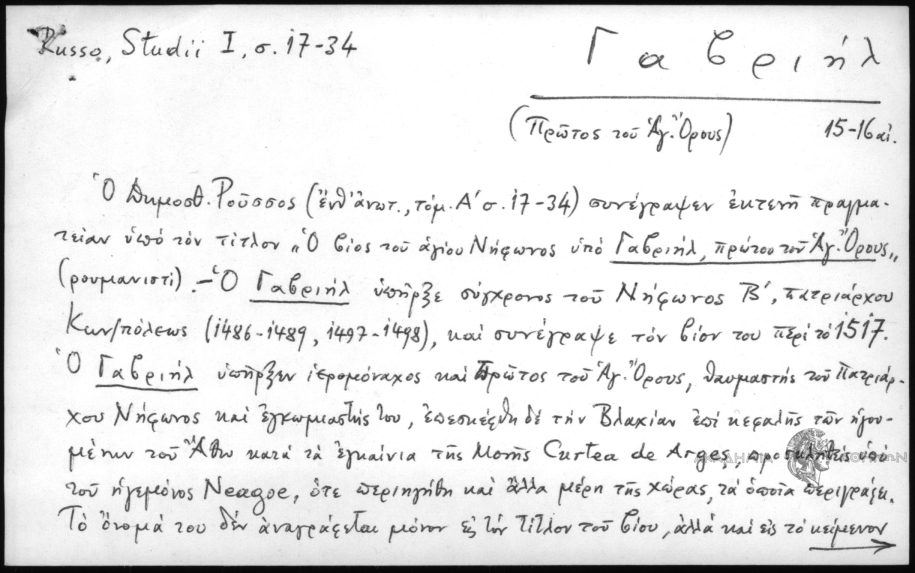 Russo, Studii I, σ. 17-34
Γαβριήλ
(Πρῶτος τοῦ Ἁγ. Ὄρους) 15-16 αἰ.
Ὁ Δημοσθ. Ροῦσσος (ἔνθ' ἀνωτ., τόμ. Α' σ. 17-34) συνέγραψεν ἐκτενῆ πραγμα-
τείαν ὑπό τόν τίτλον „Ὁ βίος τοῦ ἁγίου Νήφωνος ὑπό Γαβριήλ, πρώτου τοῦ Ἁγ. Ὄρους„
(ρουμανιστί). – Ὁ Γαβριήλ ὑπῆρξε σύγχρονος τοῦ Νήφωνος Β', πατριάρχου
Κων/πόλεως (1486-1489, 1497-1498), καί συνέγραψε τόν βίον του περί τό 1517.
Ὁ Γαβριήλ ὑπῆρξεν ἱερομόναχος καί Πρῶτος τοῦ Ἁγ. Ὄρους, θαυμαστής τοῦ Πατριάρ-
χου Νήφωνος καί ἐγκωμιαστής του, ἐπεσκέφθη δέ τήν Βλαχίαν ἐπί κεφαλῆς τῶν ἡγου-
μένων τοῦ Ἄθω κατά τά ἐγκαίνια τῆς Μονῆς Curtea de Argeș, προσκληθείς ὑπό
τοῦ ἡγεμόνος Neagoe, ὅτε περιηγήθη καί ἄλλα μέρη τῆς χώρας, τά ὁποῖα περιγράφει.
Τό ὄνομά του δέν ἀναγράφεται μόνον εἰς τόν τίτλον τοῦ βίου, ἀλλά καί εἰς τό κείμενον